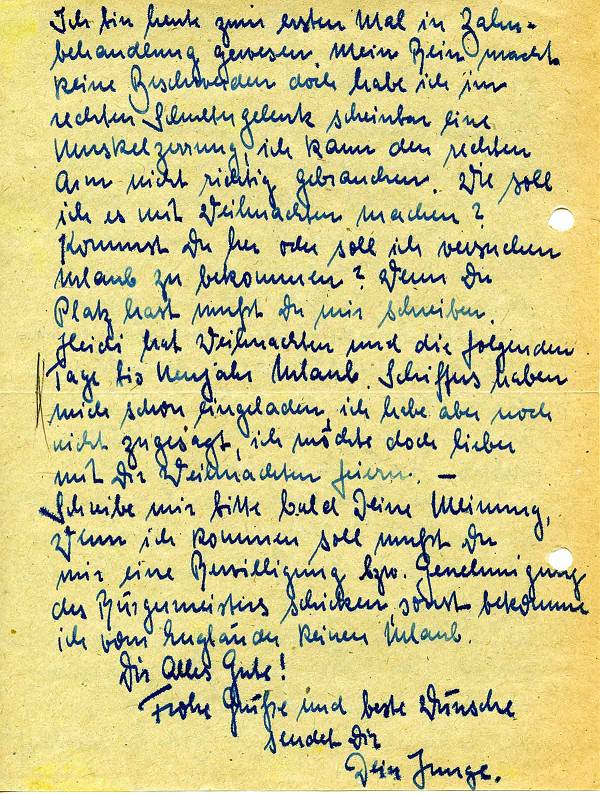 Ich bin heute zum ersten Mal in Zahn-
behandlung gewesen. Mein Bein macht
keine Beschwerden doch habe ich im
rechten Schultergelenk scheinbar eine
Muskelzerrung, ich kann den rechten
Arm nicht richtig gebrauchen. Wie soll
ich es mit Weihnachten machen?
Kommst Du her oder soll ich versuchen
Urlaub zu bekommen? Wenn Du
Platz hast mußt Du mir schreiben.
Heidi hat Weihnachten und die folgenden
Tage bis Neujahr Urlaub. Schiffus haben
mich schon eingeladen, ich habe aber noch
nicht zugesagt, ich möchte doch lieber
mit Dir Weihnachten feiern. —
Schreibe mir bitte bald Deine Meinung,
Wenn ich kommen soll mußt Du
mir eine Bewilligung bzw. Genehmigung
des Bürgermeisters schicken, sonst bekomme
ich vom Engländer keinen Urlaub.
Dir Alles Gute!
Frohe Grüße und beste Wünsche
sendet Dir
Dein Junge.